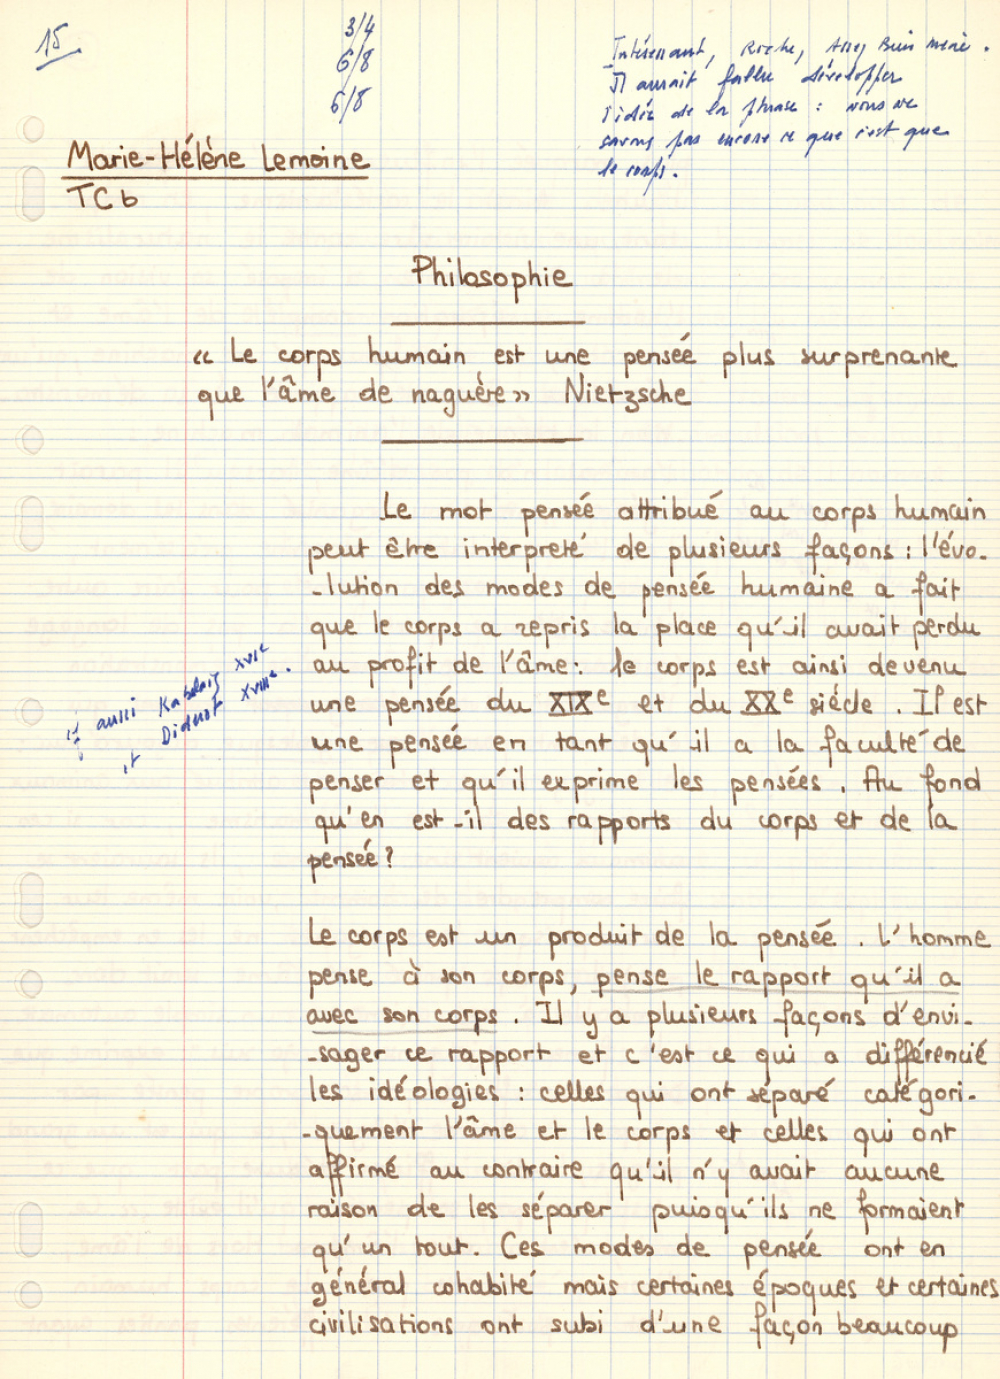 15
3/4
6/8
6/8
Intéressant, Riche, Assez Bien mené.
Il aurait fallu développer
l'idée de la phrase : nous ne
savons pas encore ce que c'est que
le corps.
Marie-Hélène Lemoine
TCb
Philosophie
« Le corps humain est une pensée plus surprenante
que l'âme de naguère » Nietzsche
Le mot pensée attribué au corps humain
peut être interpreté de plusieurs façons : l'évo-
-lution des modes de pensée humaine a fait
que le corps a repris la place qu'il avait perdu
au profit de l'âme : le corps est ainsi devenu
une pensée du XIXe et du XXe siècle. Il est
une pensée en tant qu'il a la faculté de
penser et qu'il exprime les pensées. Au fond
qu'en est-il des rapports du corps et de la
pensée ?
aussi Rabelais XVIe
et Diderot XVIIIe.
Le corps est un produit de la pensée. L'homme
pense à son corps, pense le rapport qu'il a
avec son corps. Il y a plusieurs façons d'envi-
-sager ce rapport et c'est ce qui a différencié
les idéologies : celles qui ont séparé catégori-
-quement l'âme et le corps et celles qui ont
affirmé au contraire qu'il n'y avait aucune
raison de les séparer puisqu'ils ne formaient
qu'un tout. Ces modes de pensée ont en
général cohabité mais certaines époques et certaines
civilisations ont subi d'une façon beaucoup